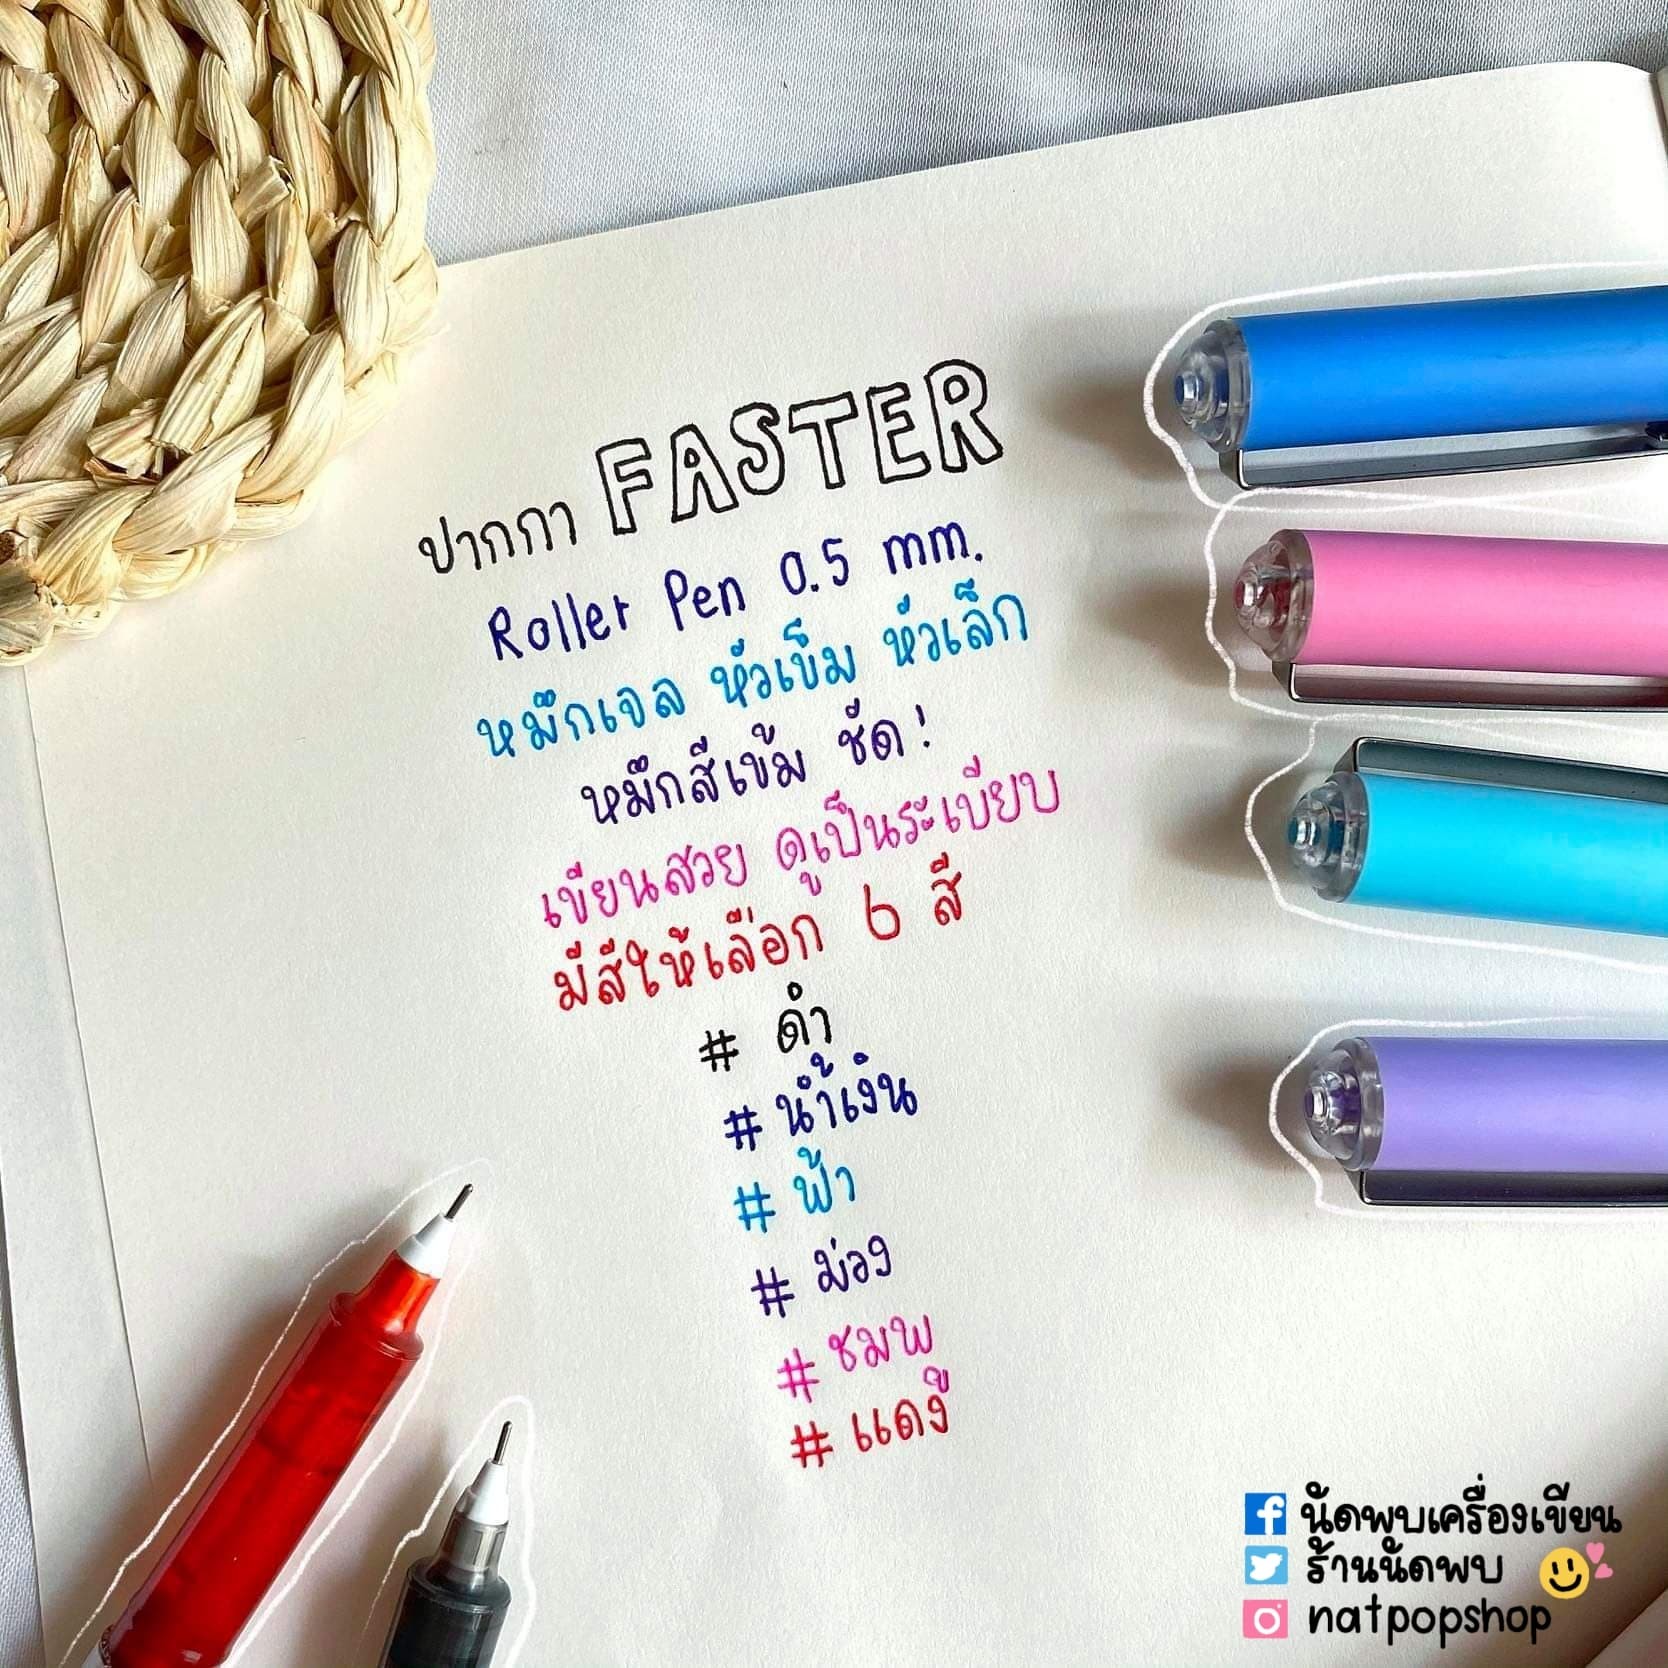 ปากกา FASTER
Roller Pen 0.5 mm.
หมึกเจล หัวเข็ม หัวเล็ก
หมึกสีเข้ม ชัด!
เขียนสวย ดูเป็นระเบียบ
มีสีให้เลือก 6 สี
# ดำ
# น้ำเงิน
# ฟ้า
# ม่วง
# ชมพู
# แดง
นัดพบเครื่องเขียน
ร้านนัดพบ
natpopshop